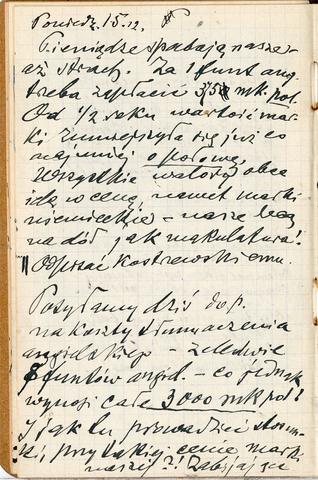 Poniedz. 15.12.
Pieniądze spadają nasze –
aż strach. Za 1 funt ang.
trzeba zapłacić 358 mk. pol.
Od 1/2 roku wartość mar-
ki zmniejszyła się już co
najmniej o połowę,
wszystkie waloty obce
idą w cenę, nawet marki
niemieckie – nasze lecą
na dół jak makulatura!
|| Odpisać Kostrzewskiemu.
Posyłamy dziś do p.
na koszty tłumaczenia
angielskiego – zaledwie
8 funtów angiel. – co jednak
wynosi całe 3000 mk pol!
I jak tu prowadzić stosun-
ki, przy takiej cenie marki
naszej?! Zabijają się